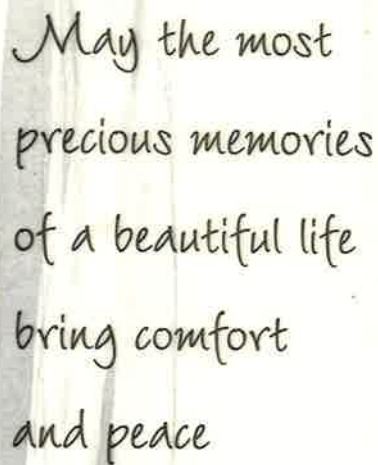 May the most
precious memories
of a beautiful life
bring comfort
and peace